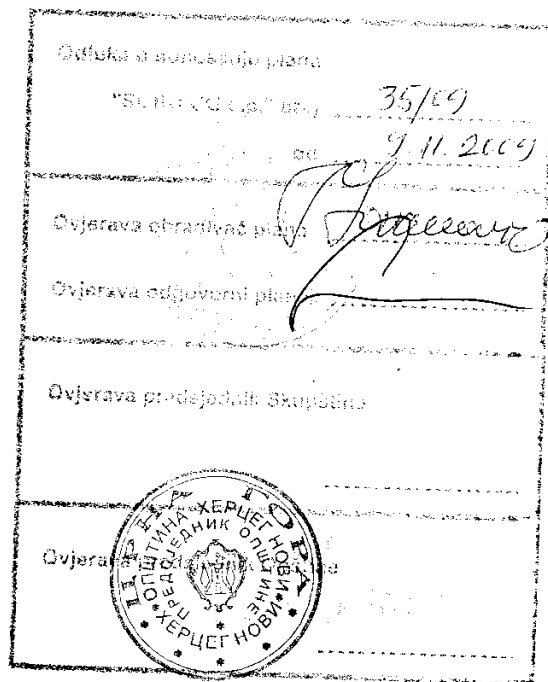 Odluka o donošenju plana
"Sl. list CG o.p." broj 35/09
od 9.11.2009
Ovjerava obrađivač plana
Ovjerava odgovorni planer
Ovjerava predsjednik Skupštine
Ovjerava
ЦРНА ГОРА
ОПШТИНА ХЕРЦЕГ НОВИ
ПРЕДСЈЕДНИК ОПШТИНЕ
ХЕРЦЕГ НОВИ